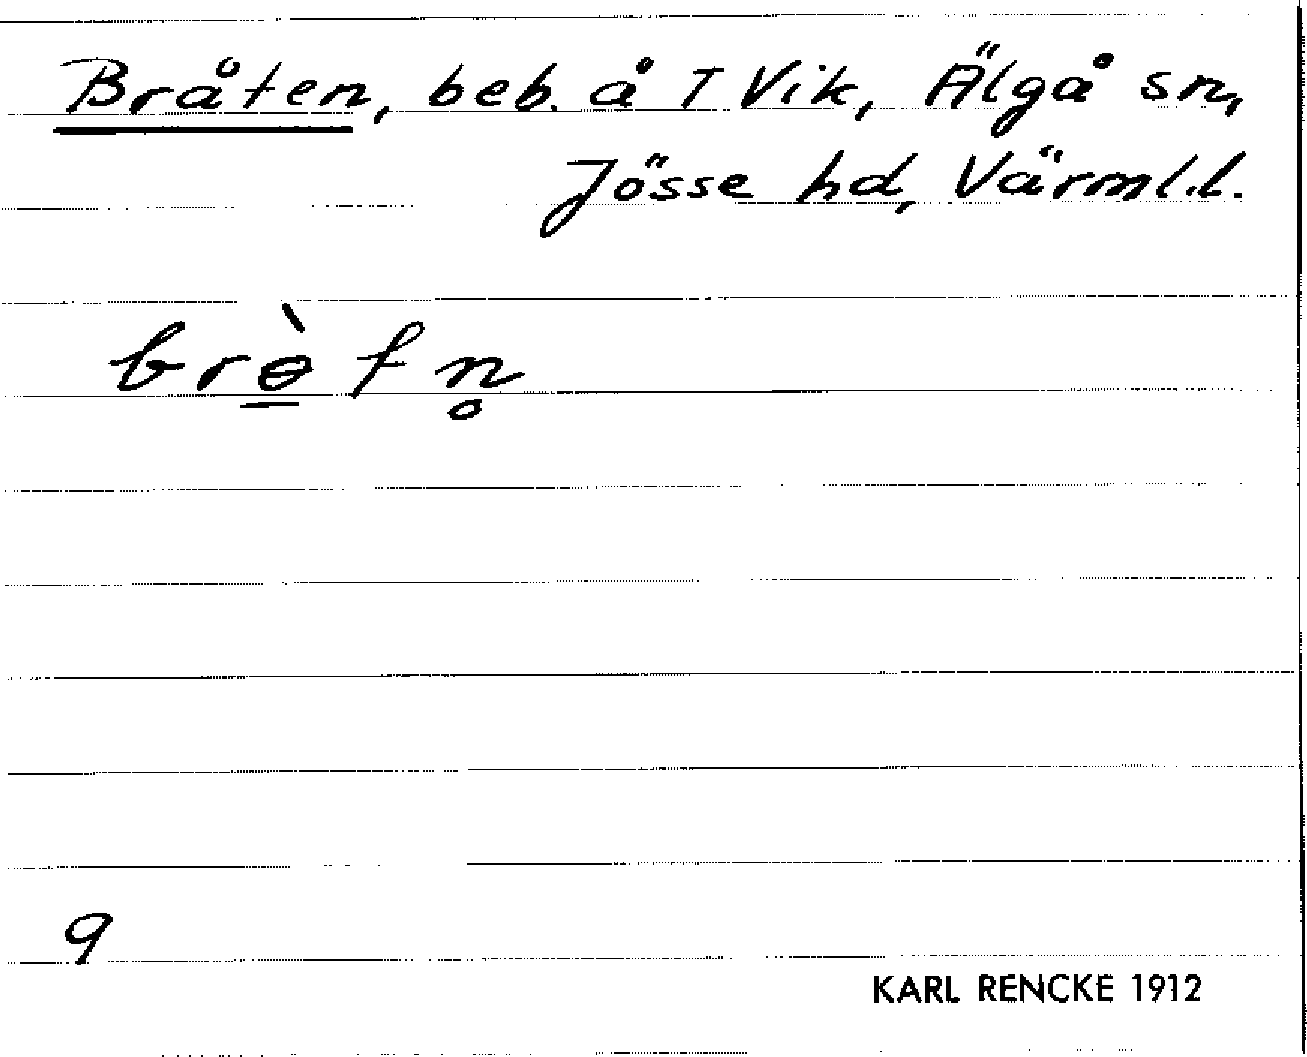 Bråten, beb. å T Vik, Älgå sn,
Jösse hd, Värml.l.
brɵ̠̀tn̥
9
KARL RENCKE 1912